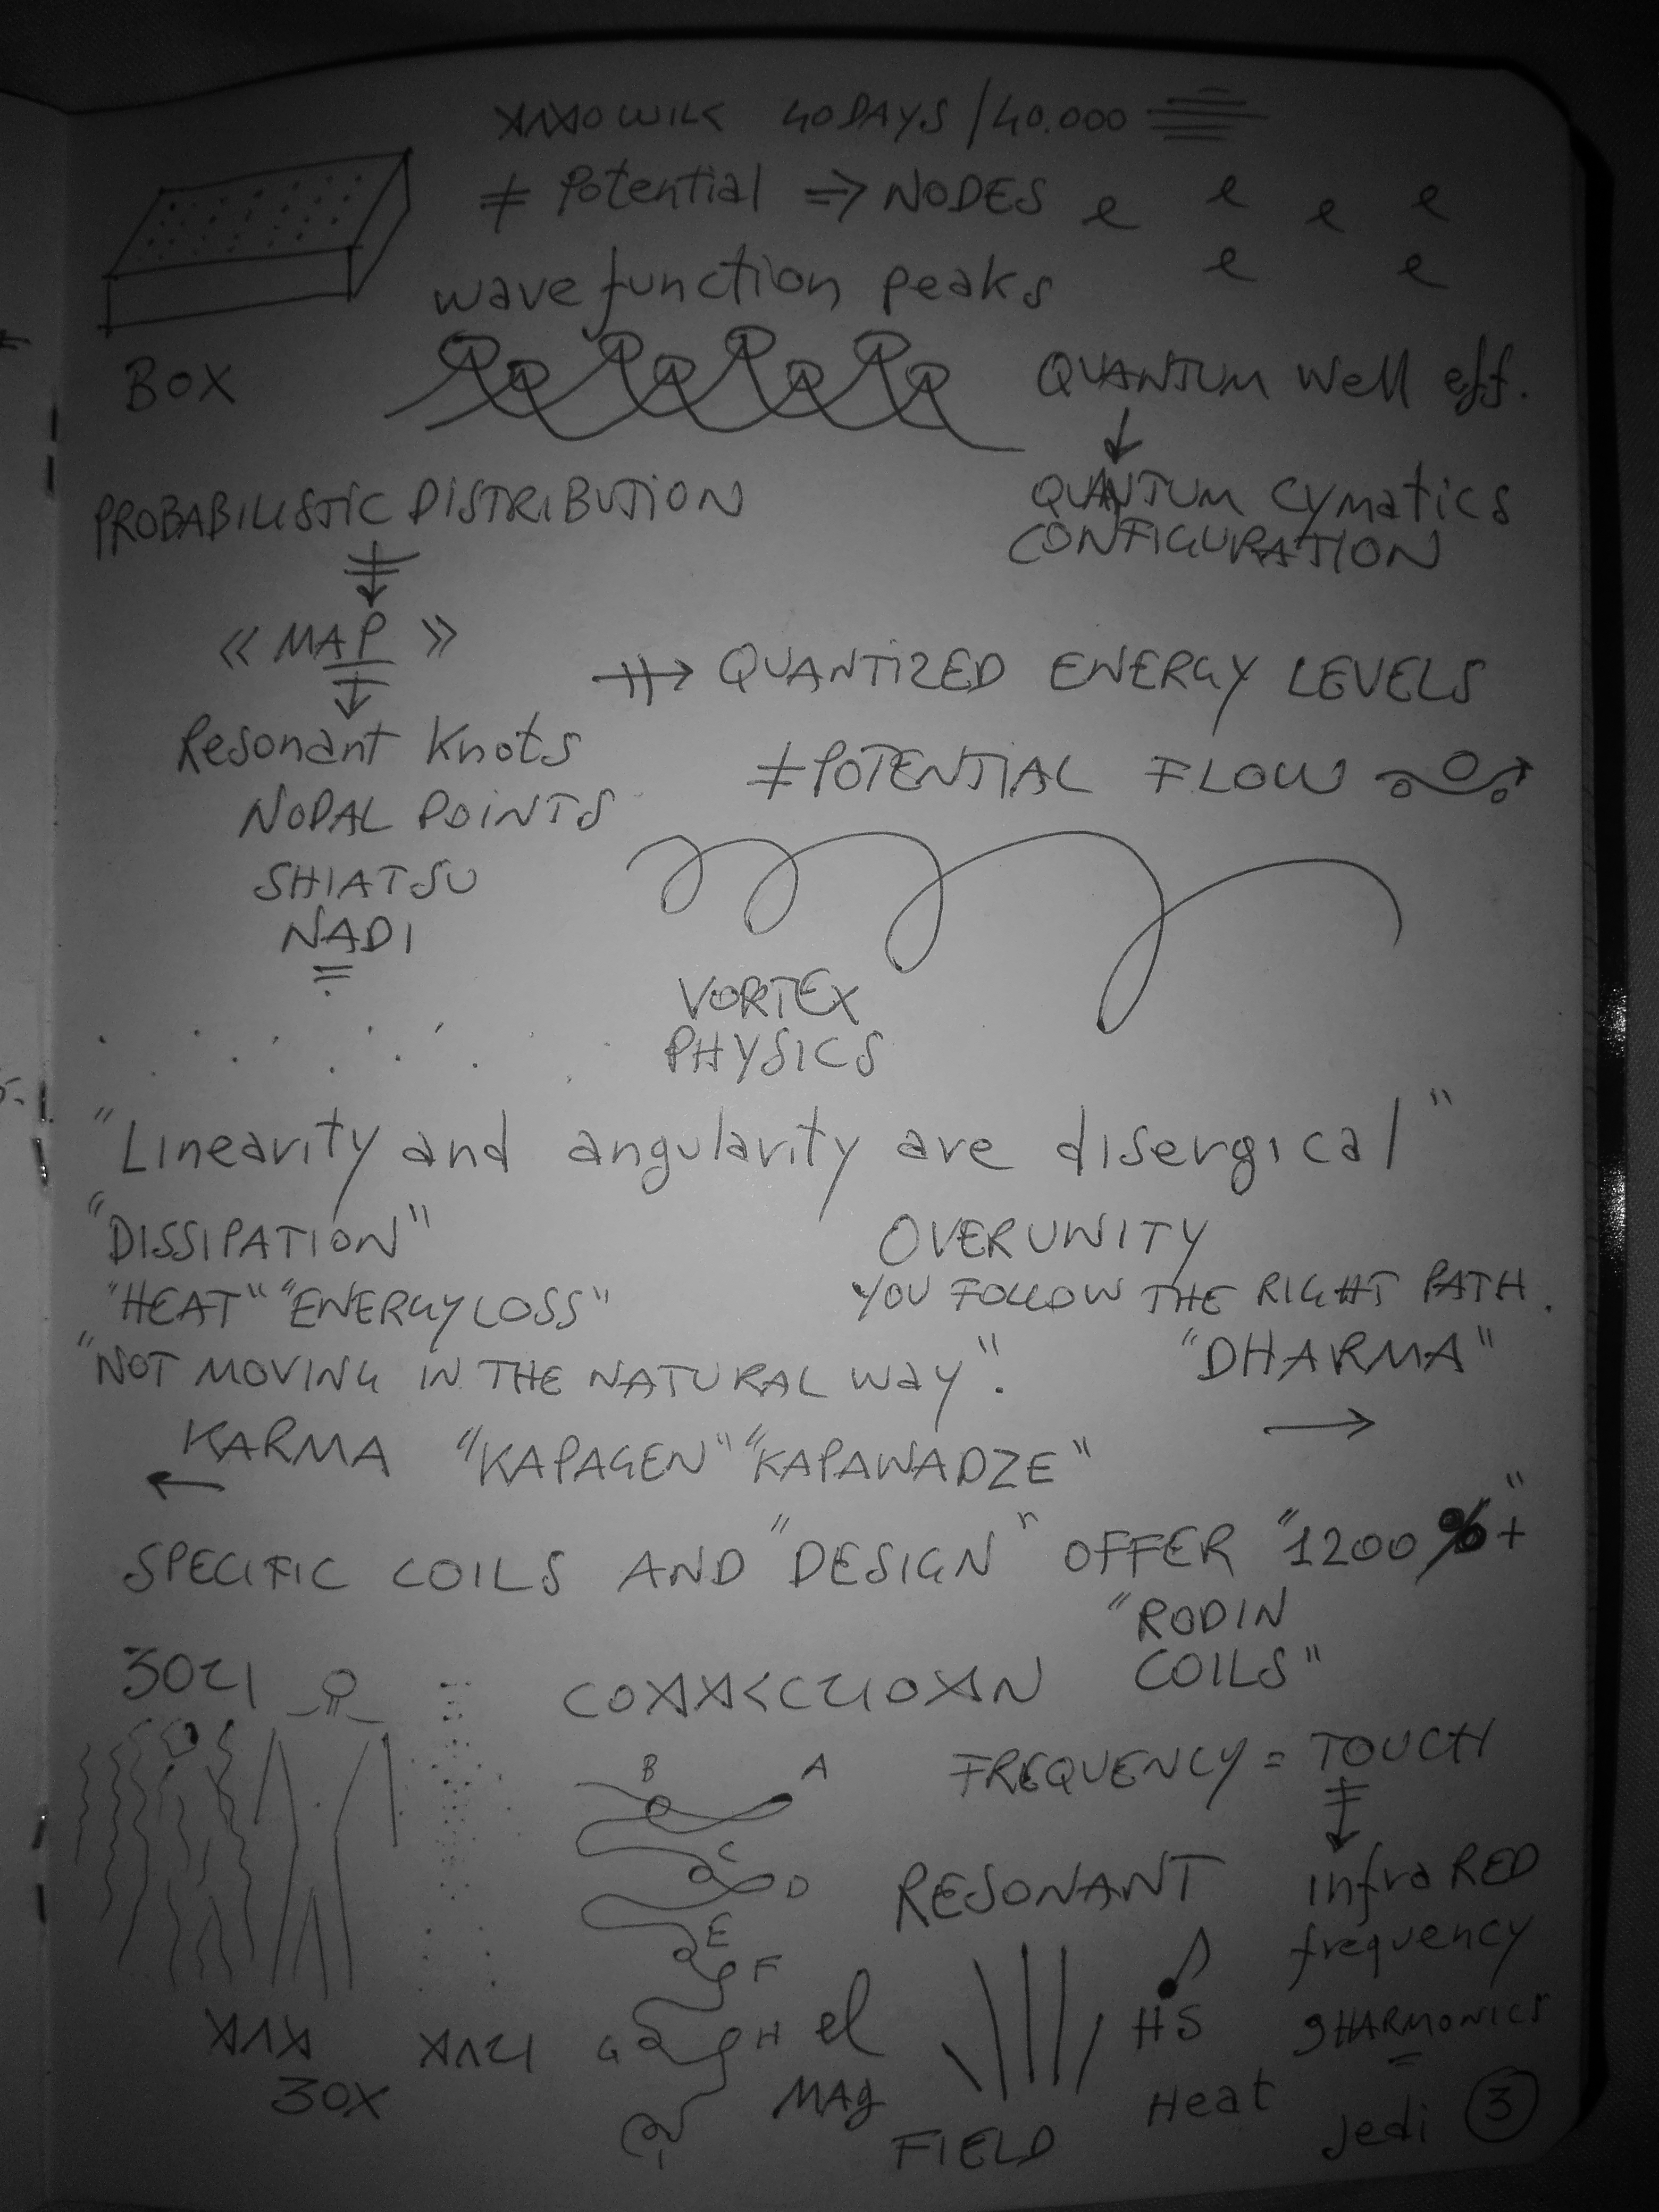 40 DAYS / 40.000
≠ Potential ⇒ NODES e e e e
e e
wave function peaks
BOX
QUANTUM Well eff.
PROBABILISTIC DISTRIBUTION
QUANTUM Cymatics
CONFIGURATION
« MAP »
QUANTIZED ENERGY LEVELS
Resonant Knots
≠ POTENTIAL FLOW
NODAL POINTS
SHIATSU
NADI
VORTEX
PHYSICS
"Linearity and angularity are disergical"
"DISSIPATION"
OVERUNITY
"HEAT" "ENERGY LOSS"
YOU FOLLOW THE RIGHT PATH.
"NOT MOVING IN THE NATURAL WAY".
"DHARMA"
KARMA "KAPAGEN" "KAPAWADZE"
SPECIFIC COILS AND "DESIGN" OFFER "1200%+"
"RODIN
COILS"
FREQUENCY = TOUCH
B A
C
D
RESONANT
infraRED
frequency
E
F
G H
el
MAg
FIELD
HS
Heat
9 HARMONICS
Jedi 3